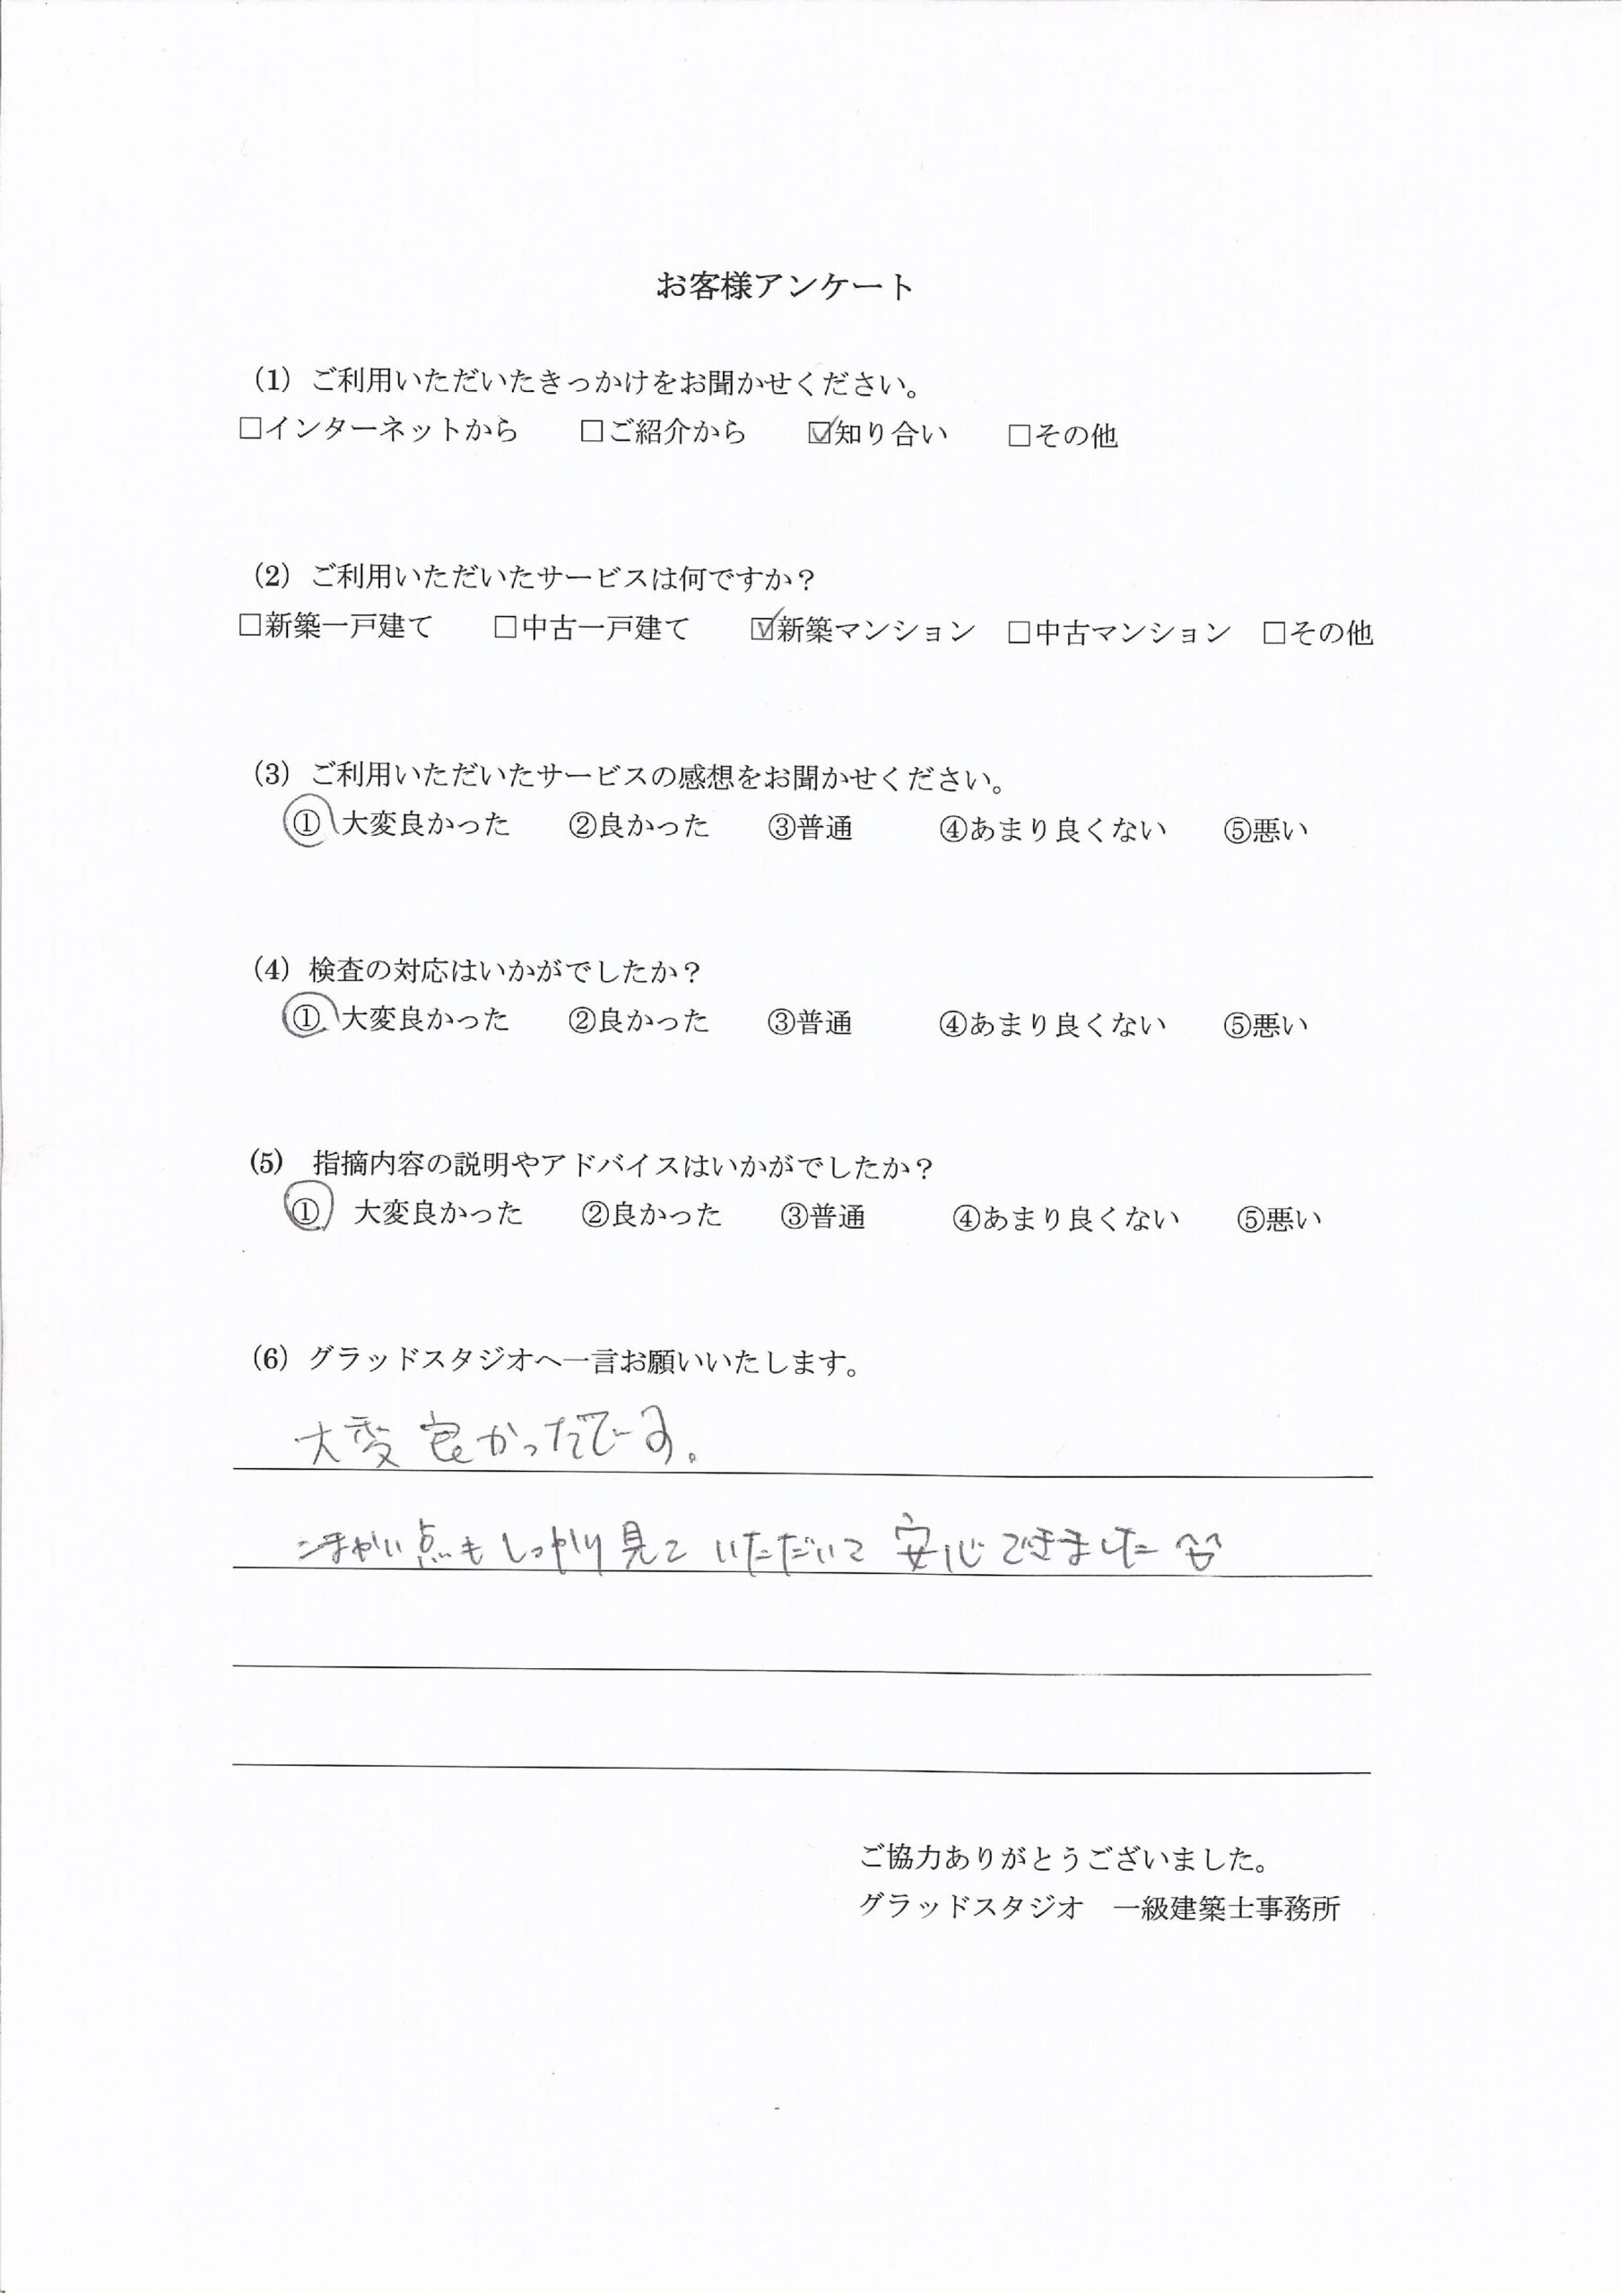 お客様アンケート
（1）ご利用いただいたきっかけをお聞かせください。
□インターネットから　□ご紹介から　☑知り合い　□その他
（2）ご利用いただいたサービスは何ですか？
□新築一戸建て　□中古一戸建て　☑新築マンション　□中古マンション　□その他
（3）ご利用いただいたサービスの感想をお聞かせください。
①大変良かった　②良かった　③普通　④あまり良くない　⑤悪い
（4）検査の対応はいかがでしたか？
①大変良かった　②良かった　③普通　④あまり良くない　⑤悪い
(5)　指摘内容の説明やアドバイスはいかがでしたか？
①　大変良かった　②良かった　③普通　④あまり良くない　⑤悪い
（6）グラッドスタジオへ一言お願いいたします。
大変良かったでーす。
こまかい点もしっかり見ていただいて安心できました
ご協力ありがとうございました。
グラッドスタジオ　一級建築士事務所